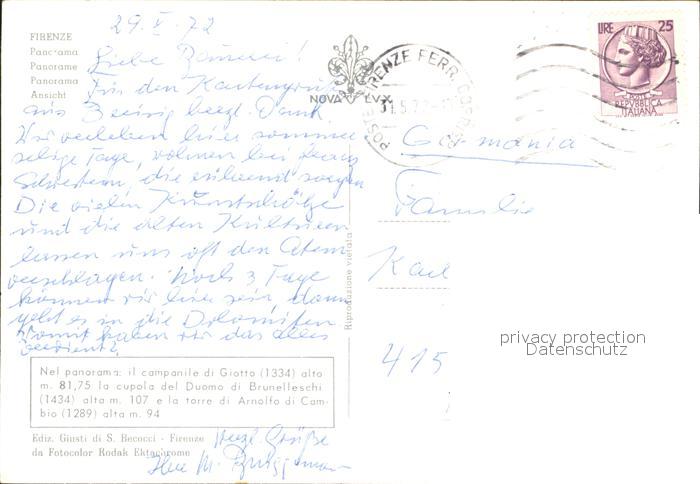 29.V.72
FIRENZE
Panorama
Panorame
Panorama
Ansicht
Liebe
Für den Kartengruß
aus herzl. Dank
Wir verleben hier sonnen
selige Tage, wohnen bei
Schwestern, die rührend sorgen
Die vielen Kunstschätze
und die alten Kulturen
lassen uns oft den Atem
verschlagen. Noch 3 Tage
können wir hier sein, dann
geht es in die Dolomiten
Womit haben wir das alles
verdient?
Nel panorama: il campanile di Giotto (1334) alto
m. 81,75 la cupola del Duomo di Brunelleschi
(1434) alta m. 107 e la torre di Arnolfo di Cam-
bio (1289) alta m. 94
Ediz. Giusti di S. Becocci - Firenze
da Fotocolor Kodak Ektachrome
Herzl. Grüße
Ihre M.
Riproduzione vietata
NOVA LVX
POSTE FIRENZE FERR.
31.5.72
LIRE 25
POSTE
REPVBBLICA
ITALIANA
Germania
Familie
Karl
415
privacy protection
Datenschutz